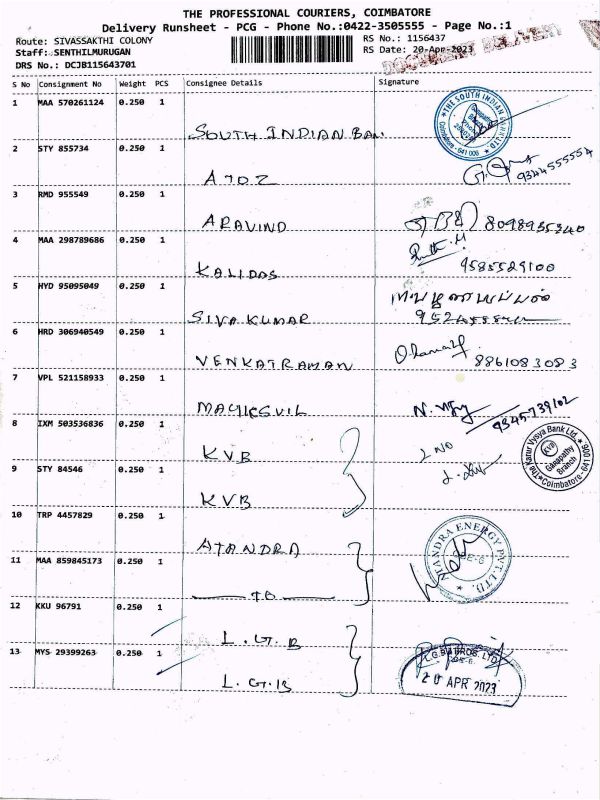 THE PROFESSIONAL COURIERS, COIMBATORE
Delivery Runsheet - PCG - Phone No.:0422-3505555 - Page No.:1
Route: SIVASSAKTHI COLONY
Staff:SENTHILMURUGAN
DRS No.: DCJB115643701
RS No.: 1156437
RS Date: 20-Apr-2023
DOCUMENT DELIVERY
S No Consignment No Weight PCS Consignee Details Signature
1 MAA 570261124 0.250 1 SOUTH INDIAN BAN
THE SOUTH INDIAN
Coimbatore - 641 006
2 STY 855734 0.250 1 ATOZ 9344555554
3 RMD 955549 0.250 1 ARAVIND 8098935340
4 MAA 298789686 0.250 1 KALIDAS 9585529100
5 HYD 95095049 0.250 1 SIVA KUMAR
6 HRD 306940549 0.250 1 VENKATRAMAN 8861083083
7 VPL 521158933 0.250 1 9345739102
8 IXM 503536836 0.250 1 KVB 2 NO
9 STY 84546 0.250 1 KVB
The Karur Vysya Bank Ltd.
KVB
Ganapathy
Branch
Coimbatore-641 006
10 TRP 4457829 0.250 1 ATANDRA
11 MAA 859845173 0.250 1 TO
ATANDRA ENERGY PVT. LTD
12 KKU 96791 0.250 1 L.G.B
13 MYS 29399263 0.250 1 L.G.B
L.G.B BROS. LTD
20 APR 2023